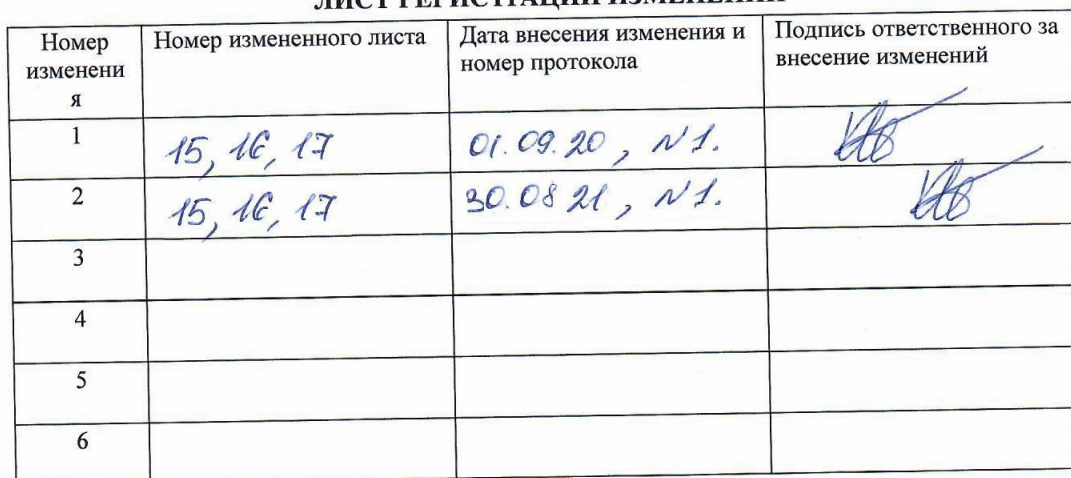 ЛИСТ РЕГИСТРАЦИИ ИЗМЕНЕНИЙ
Номер изменени я
Номер измененного листа
Дата внесения изменения и номер протокола
Подпись ответственного за внесение изменений
1
15, 16, 17
01.09.20, №1.
2
15, 16, 17
30.08 21, №1.
3
4
5
6